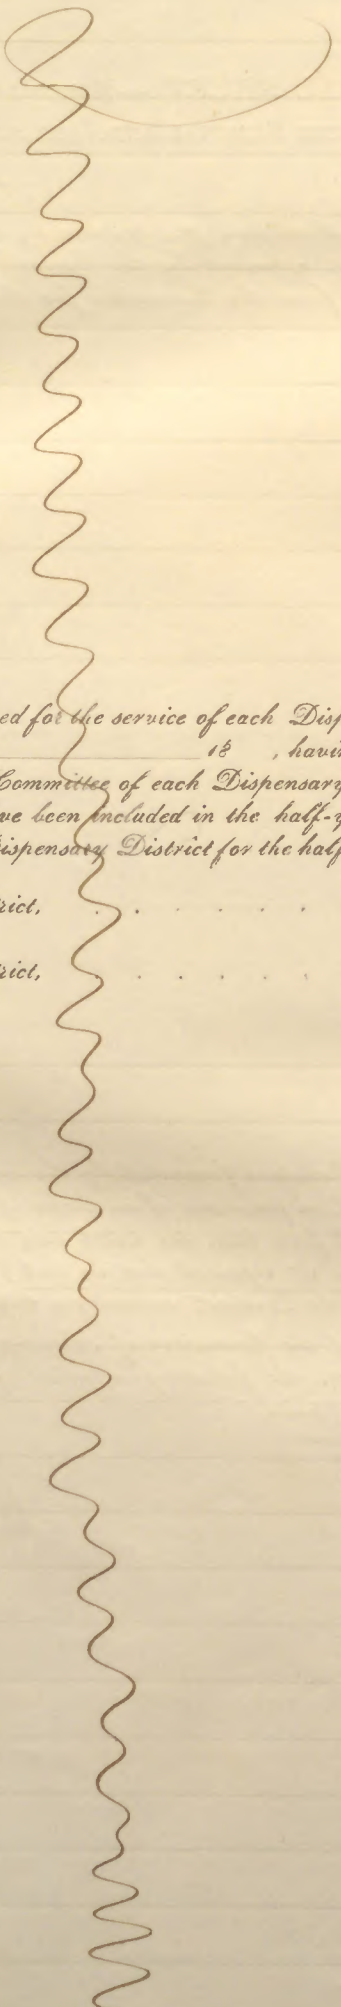 ed for the service of each Disp
18 , havin
Committee of each Dispensary
ve been included in the half-y
ispensary District for the half
rict, . . . . . .
rict, . . . . .